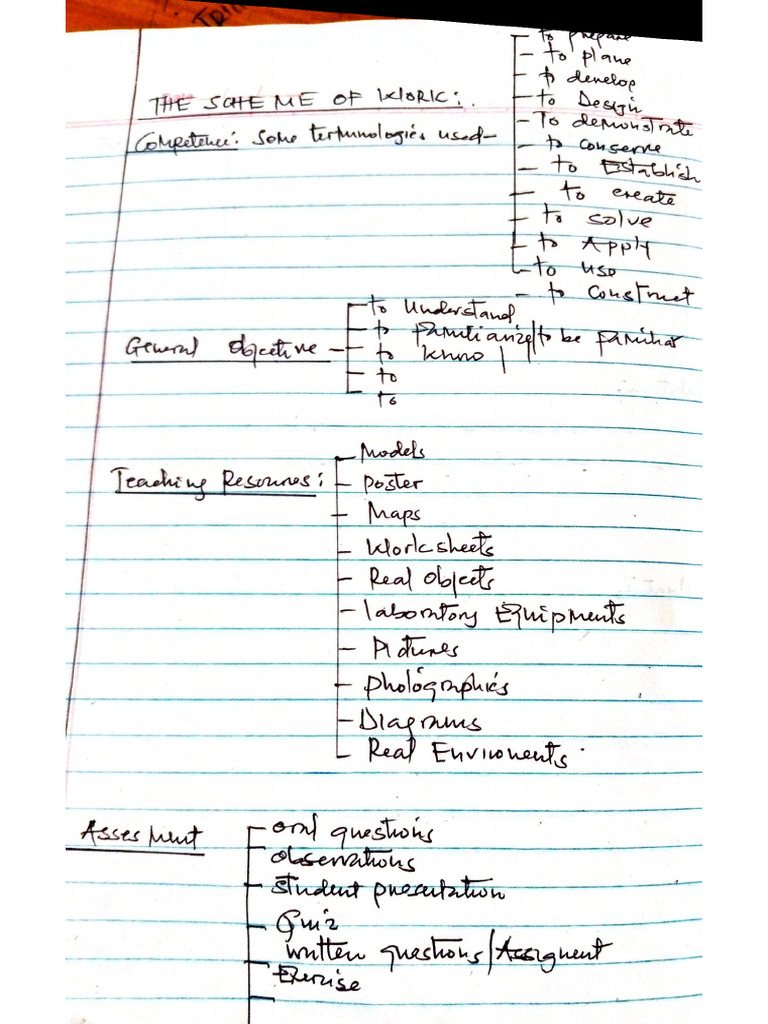 to prepare
- to plane
- to develop
- to Design
- To demonstrate
- to conserve
- to Establish
- to create
- to solve
- to Apply
- to use
- to construct
THE SCHEME OF WORK:
Competence: Some terminologies used
General Objective
- to Understand
- to familiarize/to be familiar
- to know
- to
- to
Teaching Resources:
- Models
- poster
- Maps
- Worksheets
- Real Objects
- laboratory Equipments
- Pictures
- photographies
- Diagrams
- Real Enviroments.
Assesment
- oral questions
- observations
- student presentation
- Quiz
written questions/Assignment
- Exercise